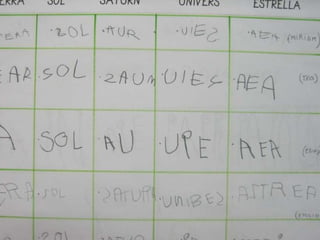 ERRA SOL SATURN UNIVERS ESTRELLA
ERA ·SOL ·AUR ·UIES ·AEA (MIRIAM)
EAR ·SOL ·SAUN ·UIES ·AEA
A SOL ·AU UPE ·AEA
ERA ·SOL ·SATURN ·UNIBES ASTREA